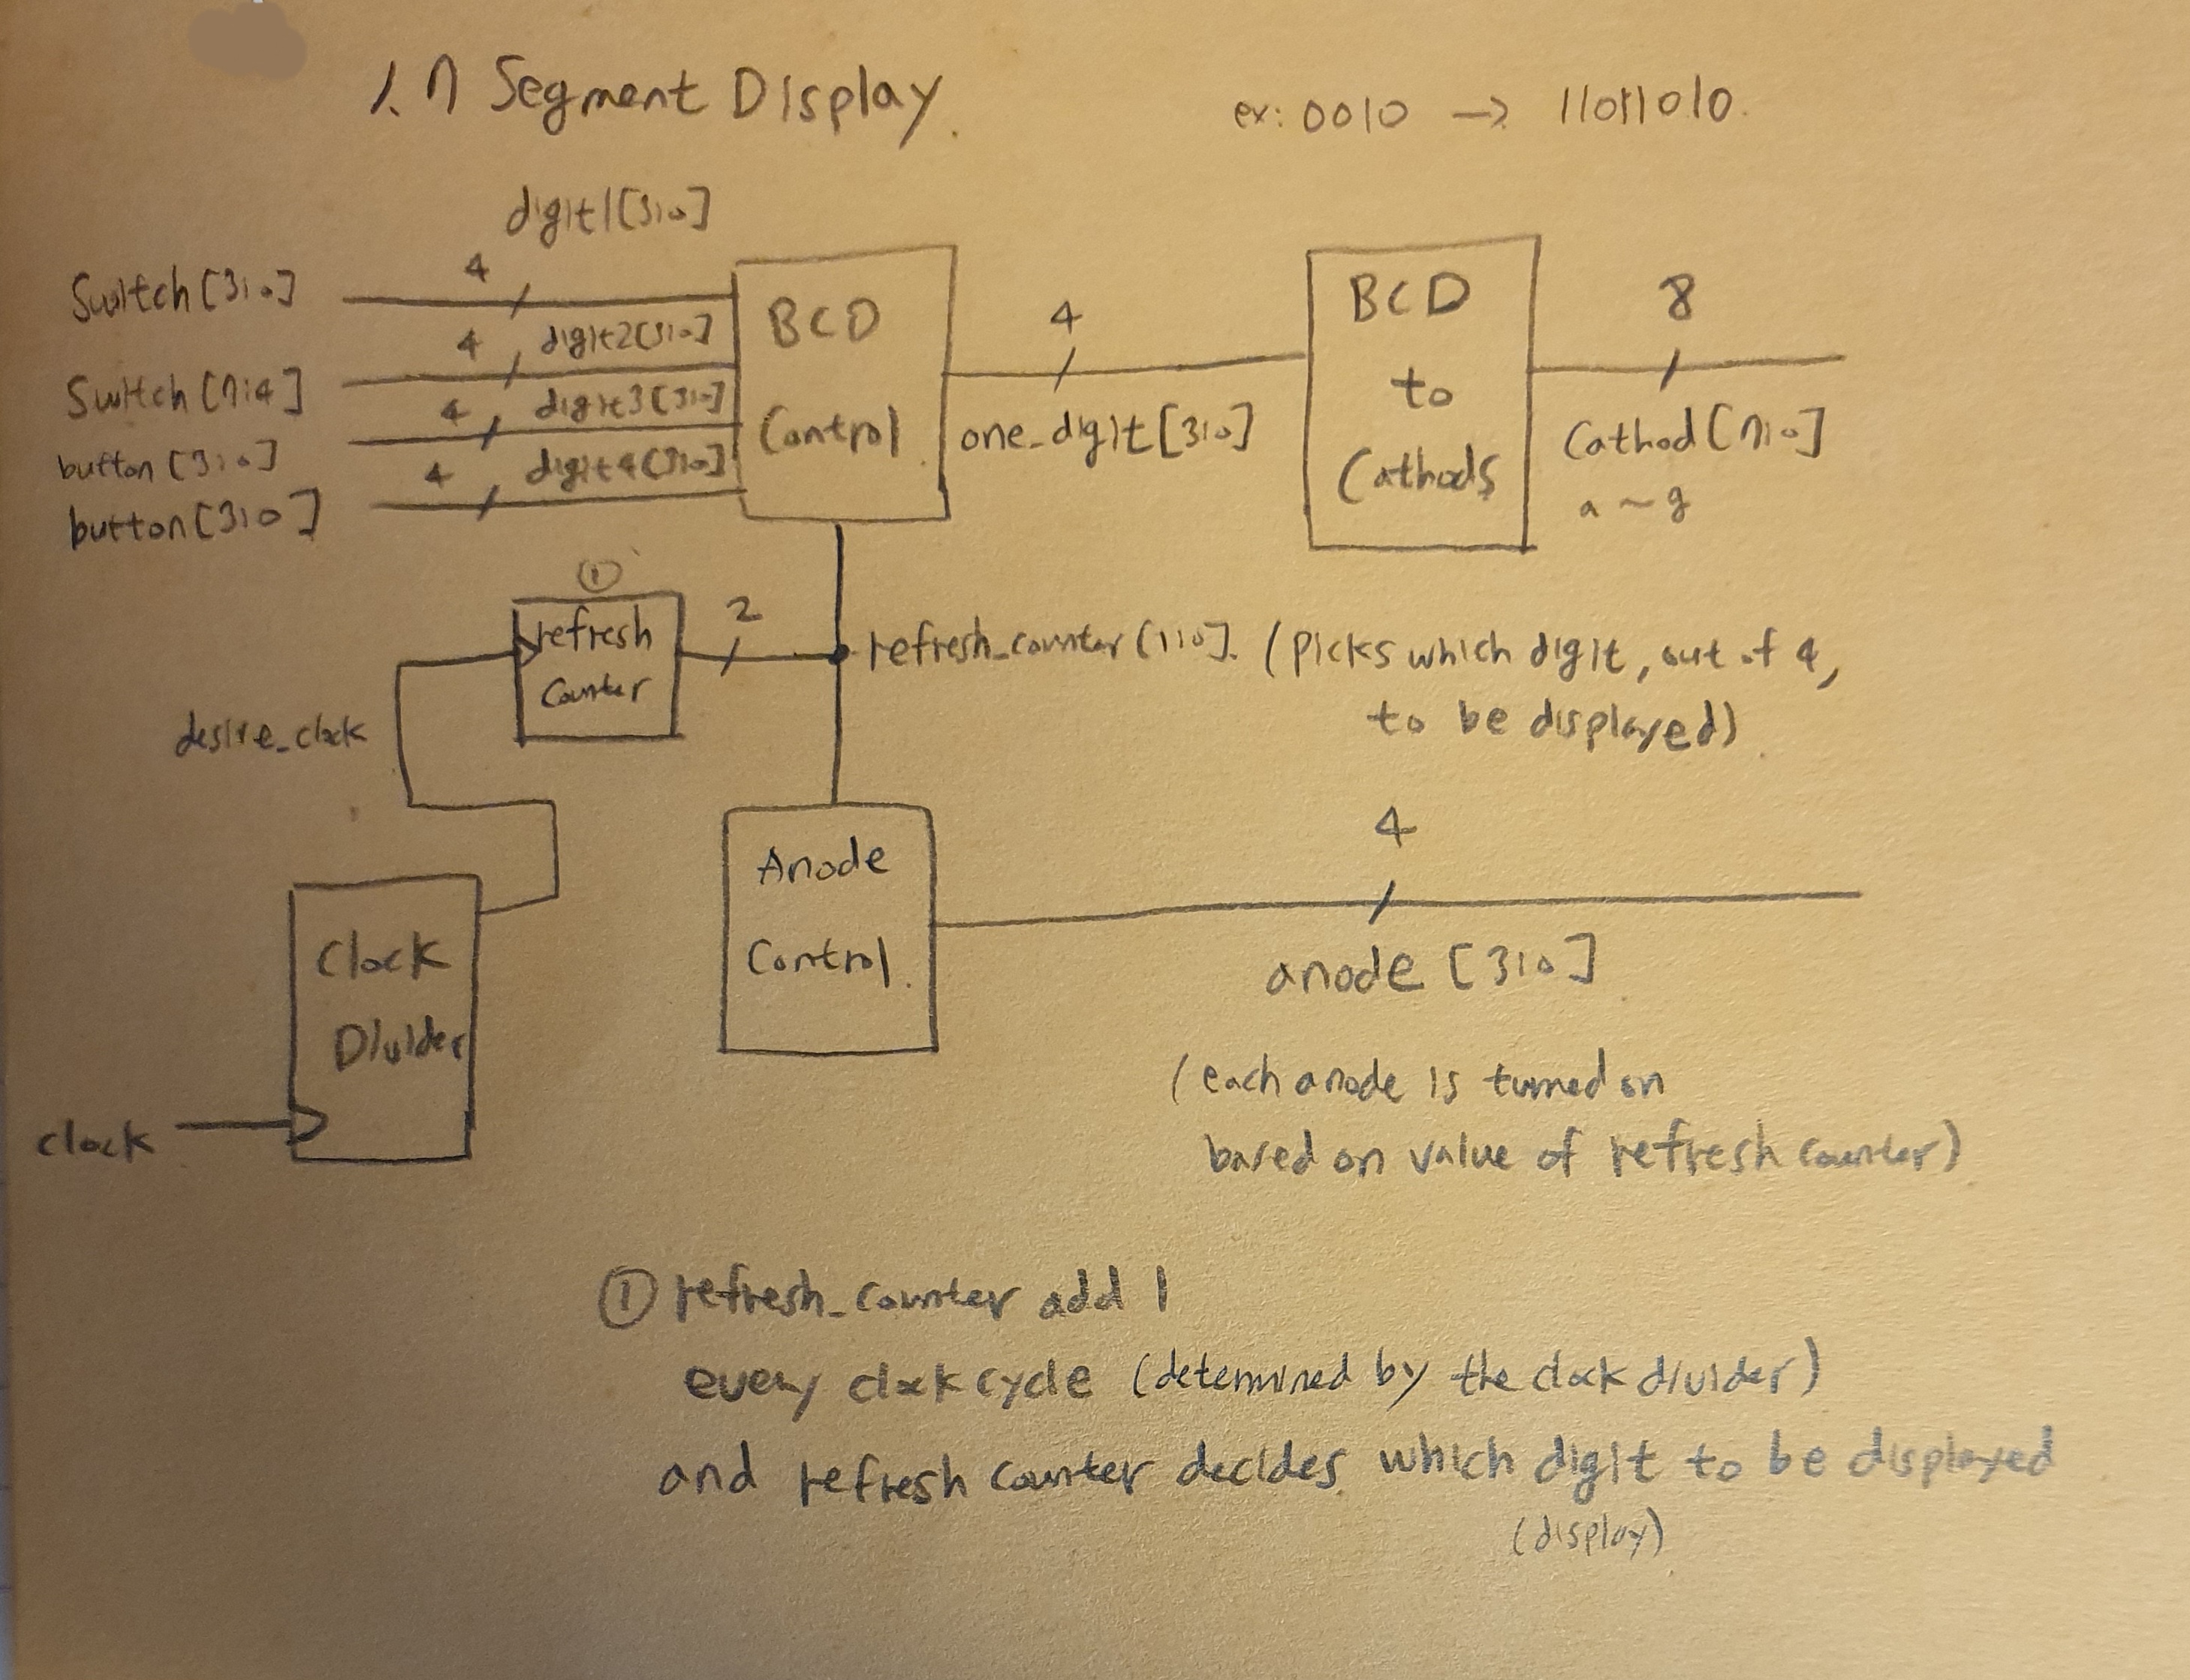 1. 7 Segment Display.
ex: 0010 → 11011010.
digit1[3:0]
Switch[3:0]
4
4
digit2[3:0]
Switch[7:4]
4
digit3[3:0]
button[3:0]
4
digit4[3:0]
button[3:0]
BCD
Control
4
one_digit[3:0]
BCD
to
Cathods
8
Cathod[7:0]
a ~ g
①
refresh
Counter
2
refresh_counter[1:0]. (picks which digit, out of 4,
to be displayed)
desire_clock
Clock
Divider
clock
Anode
Control.
4
anode [3:0]
(each anode is turned on
based on value of refresh counter)
① refresh_counter add 1
every clock cycle (determined by the clock divider)
and refresh counter decides which digit to be displayed
(display)